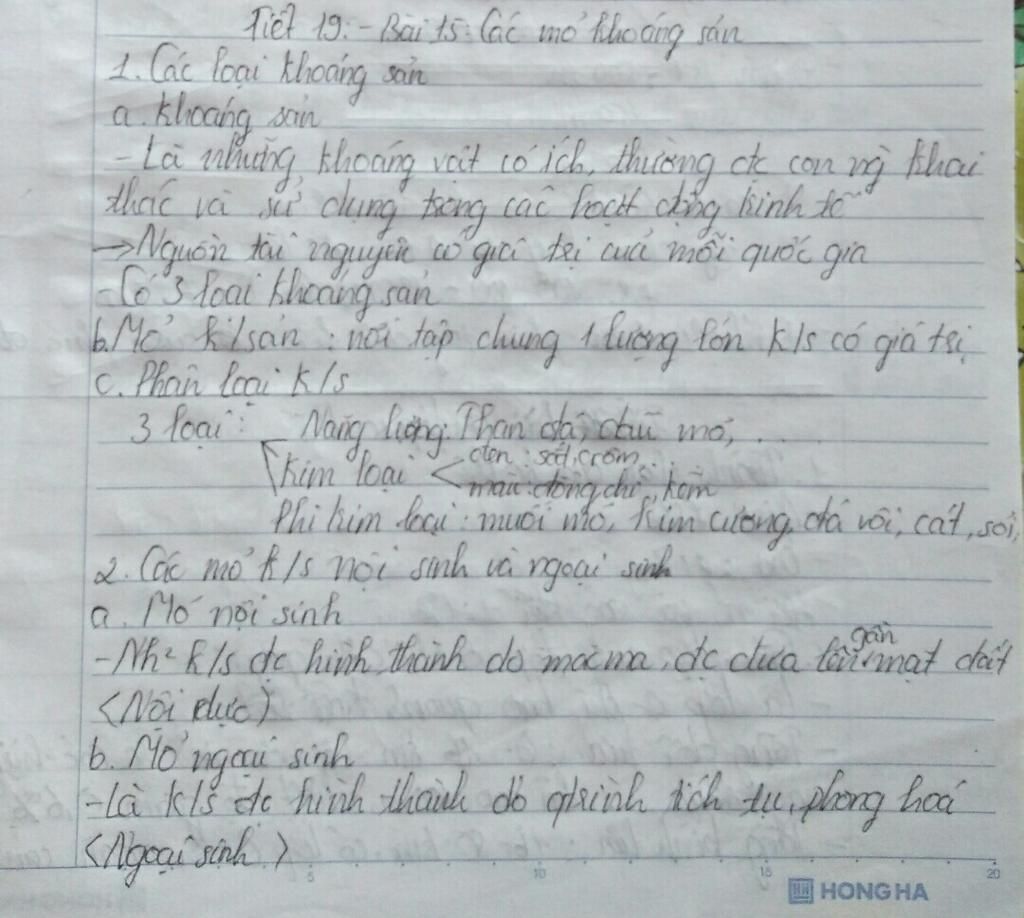 Tiết 19: - Bài 15: Các mỏ khoáng sản
1. Các loại khoáng sản
a. Khoáng sản
- Là những khoáng vật có ích, thường đc con ng khai
thác và sử dụng trong các hoạt động kinh tế
→ Nguồn tài nguyên có giá trị của mỗi quốc gia
- Có 3 loại khoáng sản
b. Mỏ k/sản : nơi tập chung 1 lượng lớn k/s có giá trị
c. Phân loại k/s
3 loại : Năng lượng: Than đá, dầu mỏ, ...
đen : sắt, crôm...
Kim loại <
màu: đồng, chì, kẽm
Phi kim loại : muối mỏ, kim cương, đá vôi, cát, sỏi,
2. Các mỏ k/s nội sinh và ngoại sinh
a. Mỏ nội sinh
gần
- Nh² k/s đc hình thành do mác ma, đc đưa lên mặt đất
(Nội lực)
b. Mỏ ngoại sinh
- Là k/s đc hình thành do qtrình tích tụ, phong hoá
(Ngoại sinh)
5 10 15 20
HH HONG HA